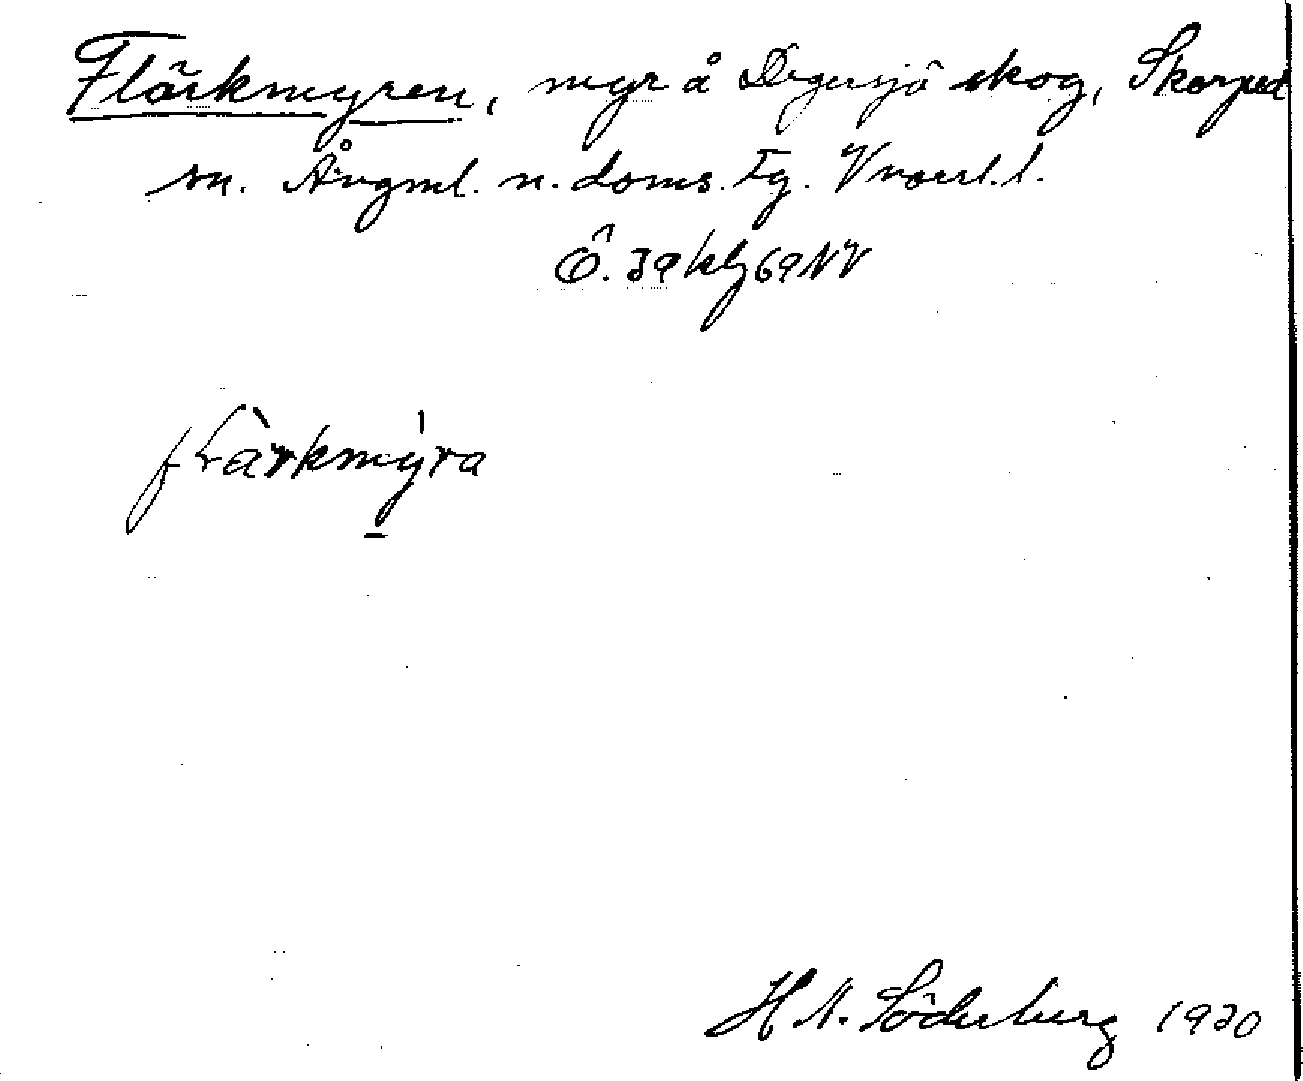 Flärkmyren, myr å Degersjö skog, Skorped
sn. Ångml. n. doms. tg. Vnorrl. l.
Ö. 39 kbl 69 NV
flärkmýra
H N. Söderberg 1930